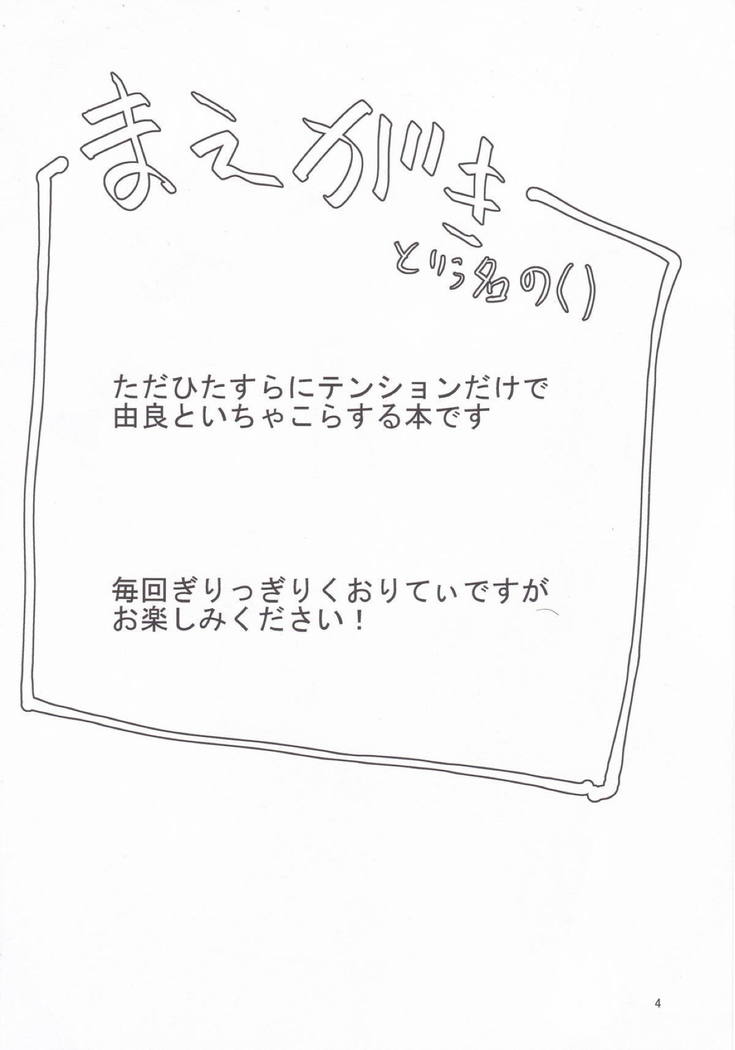 まえがき
という名の()
ただひたすらにテンションだけで
由良といちゃこらする本です
毎回ぎりっぎりくおりてぃですが
お楽しみください!
4